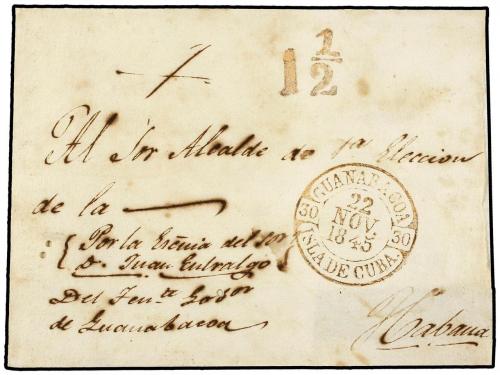 1 1/2
Al Sor Alcalde de 1ª Eleccion
de la
Por la Escñia del Sor
D. Juan Entralgo
Del Tente Gobor
de Guanabacoa
GUANABACOA
30 22 NOV. 1845 30
ISLA DE CUBA.
Habana